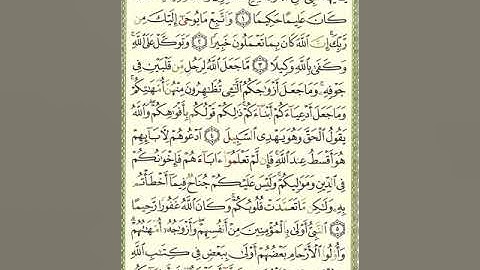 كَانَ عَلِيمًا حَكِيمًا ١ وَاتَّبِعْ مَا يُوحَىٰ إِلَيْكَ مِن
رَّبِّكَ إِنَّ اللَّهَ كَانَ بِمَا تَعْمَلُونَ خَبِيرًا ٢ وَتَوَكَّلْ عَلَى اللَّهِ
وَكَفَىٰ بِاللَّهِ وَكِيلًا ٣ مَّا جَعَلَ اللَّهُ لِرَجُلٍ مِّن قَلْبَيْنِ فِي
جَوْفِهِ وَمَا جَعَلَ أَزْوَاجَكُمُ اللَّائِي تُظَاهِرُونَ مِنْهُنَّ أُمَّهَاتِكُمْ
وَمَا جَعَلَ أَدْعِيَاءَكُمْ أَبْنَاءَكُمْ ذَٰلِكُمْ قَوْلُكُم بِأَفْوَاهِكُمْ وَاللَّهُ
يَقُولُ الْحَقَّ وَهُوَ يَهْدِي السَّبِيلَ ٤ ادْعُوهُمْ لِآبَائِهِمْ
هُوَ أَقْسَطُ عِندَ اللَّهِ فَإِن لَّمْ تَعْلَمُوا آبَاءَهُمْ فَإِخْوَانُكُمْ
فِي الدِّينِ وَمَوَالِيكُمْ وَلَيْسَ عَلَيْكُمْ جُنَاحٌ فِيمَا أَخْطَأْتُم
بِهِ وَلَٰكِن مَّا تَعَمَّدَتْ قُلُوبُكُمْ وَكَانَ اللَّهُ غَفُورًا رَّحِيمًا
٥ النَّبِيُّ أَوْلَىٰ بِالْمُؤْمِنِينَ مِنْ أَنفُسِهِمْ وَأَزْوَاجُهُ أُمَّهَاتُهُمْ
وَأُولُو الْأَرْحَامِ بَعْضُهُمْ أَوْلَىٰ بِبَعْضٍ فِي كِتَابِ اللَّهِ